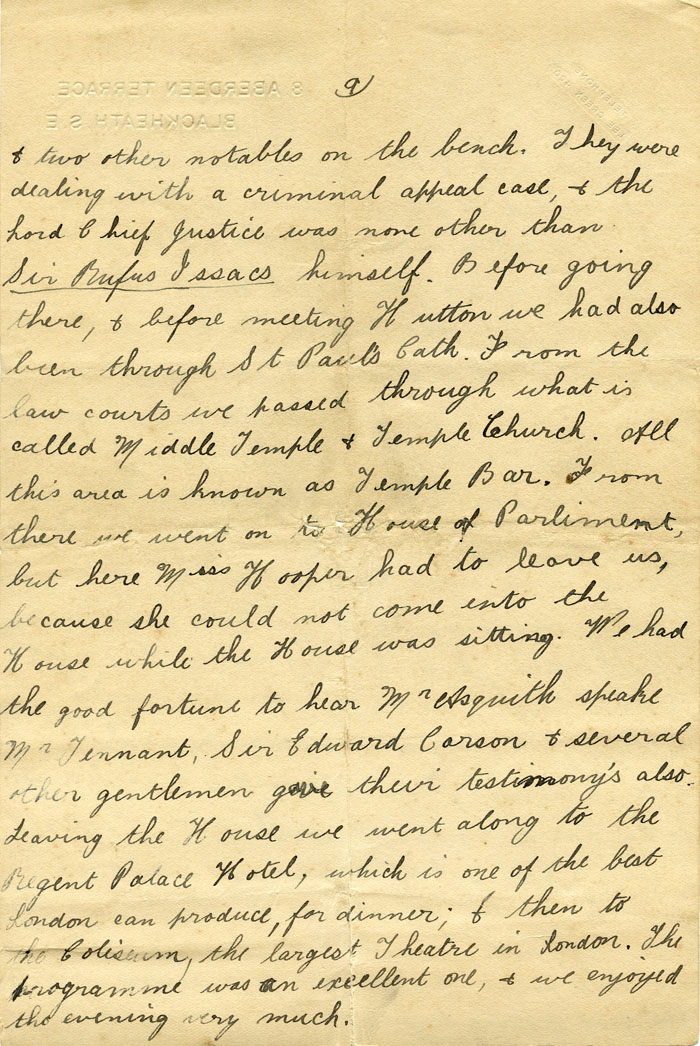 9)
8 ABERDEEN TERRACE.
BLACKHEATH S.E
& two other notables on the bench. They were
dealing with a criminal appeal case, & the
Lord Chief Justice was none other than
Sir Rufus Issacs himself. Before going
there, & before meeting Hutton we had also
been through St Paul's Cath. From the
law courts we passed through what is
called Middle Temple & Temple Church. All
this area is known as Temple Bar. From
there we went on to House of Parliment,
but here Miss Hooper had to leave us,
because she could not come into the
House while the House was sitting. We had
the good fortune to hear Mr Asquith speake
Mr Tennant, Sir Edward Carson & several
other gentlemen give their testimony's also.
Leaving the House we went along to the
Regent Palace Hotel, which is one of the best
London can produce, for dinner; & then to
the Coliseum, the largest Theatre in London. The
programme was an excellent one, & we enjoyed
the evening very much.